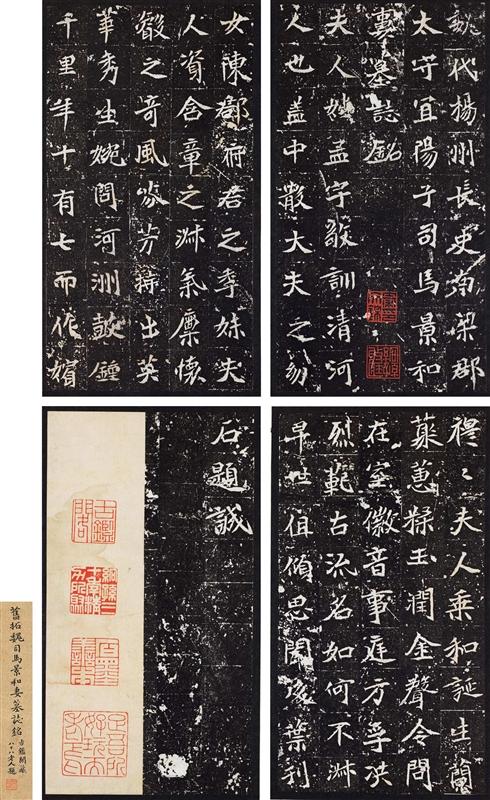 魏代揚州長史南梁郡
太守宜陽子司馬景和
妻墓誌銘
夫人姓孟字敬訓清河
人也蓋中散大夫之幼
女陳郡府君之季妹夫
人資含章之淑氣稟懷
叡之奇風芬芳特出英
華秀生婉問河洲謐鍾
千里年十有七而作嬪
穆〻夫人乘和誕生蘭
蕤蕙糅玉潤金聲令問
在室徽音事庭方孚洪
烈範古流名如何不淑
早世徂傾思聞後葉刊
石題誠
古鑑閣
舊拓魏司馬景和妻墓誌銘
古鑑閣藏
八十八老人題